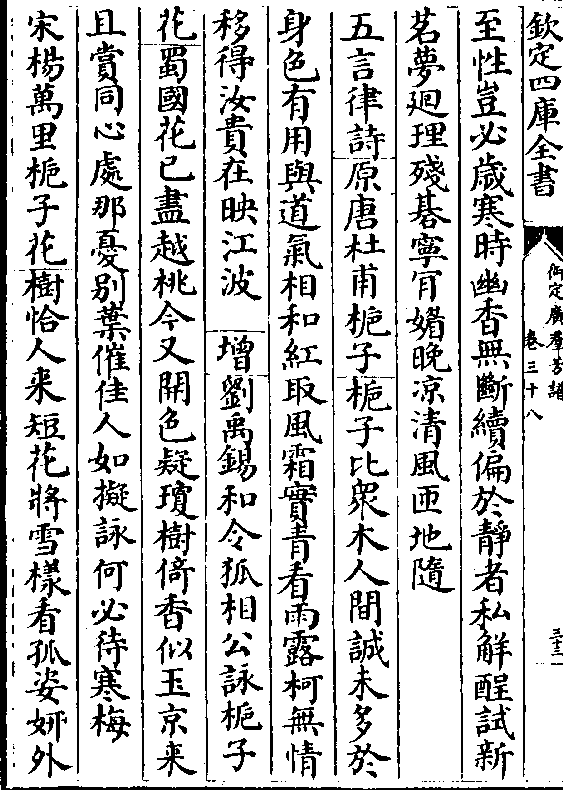 欽定四庫全書
御定廣羣芳譜
卷三十八
至性豈必歲寒時幽香無斷續偏於靜者私解酲試新
茗夢迴理殘碁寧肎媚晚凉清風匝地隨
五言律詩原唐杜甫梔子梔子比衆木人間誠未多於
身色有用與道氣相和紅取風霜實青看雨露柯無情
移得汝貴在映江波 增劉禹錫和令狐相公詠梔子
花蜀國花已盡越桃今又開色疑瓊樹倚香似玉京来
且賞同心處那憂别葉催佳人如擬詠何必待寒梅
宋楊萬里梔子花樹恰人来短花將雪樣看孤姿妍外